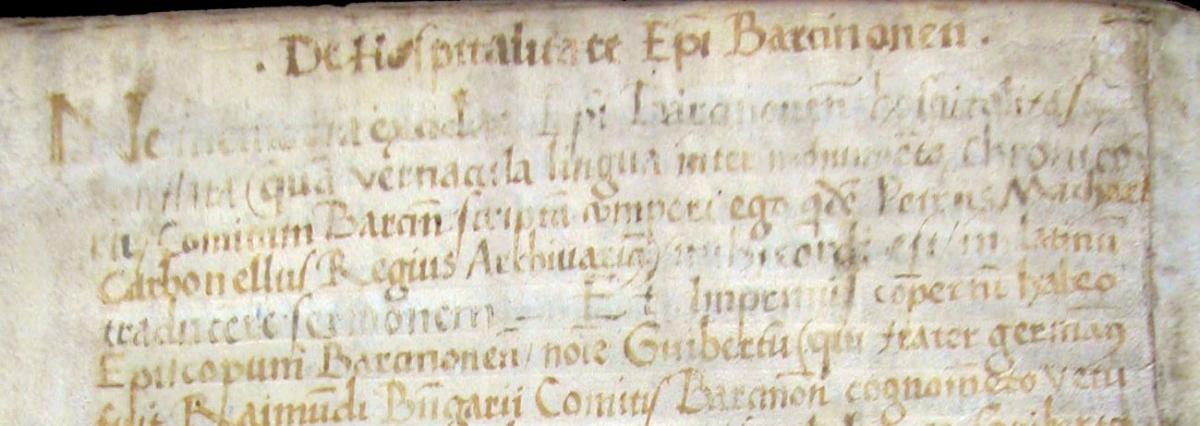 . De Hospitalitate Epi Barcinonen̄ .
Ne Epi Barcinonen̄ hospitalitas
(quā vernacula lingua inter monumēta Chronico
Comitum Barcin̄ scriptā comperi ego qdē Petrus Michael
Carbonellus Regius Archivariꝰ) mihi cordi est in latinū
traducere sermonem — Et Imprimis cōpertū habeo
Episcopum Barcinonen̄ noīe Guibertū (qui frater germanꝰ
fuit Raimūdi Bn̄garii Comitis Barcinon̄ cognomēto vetu